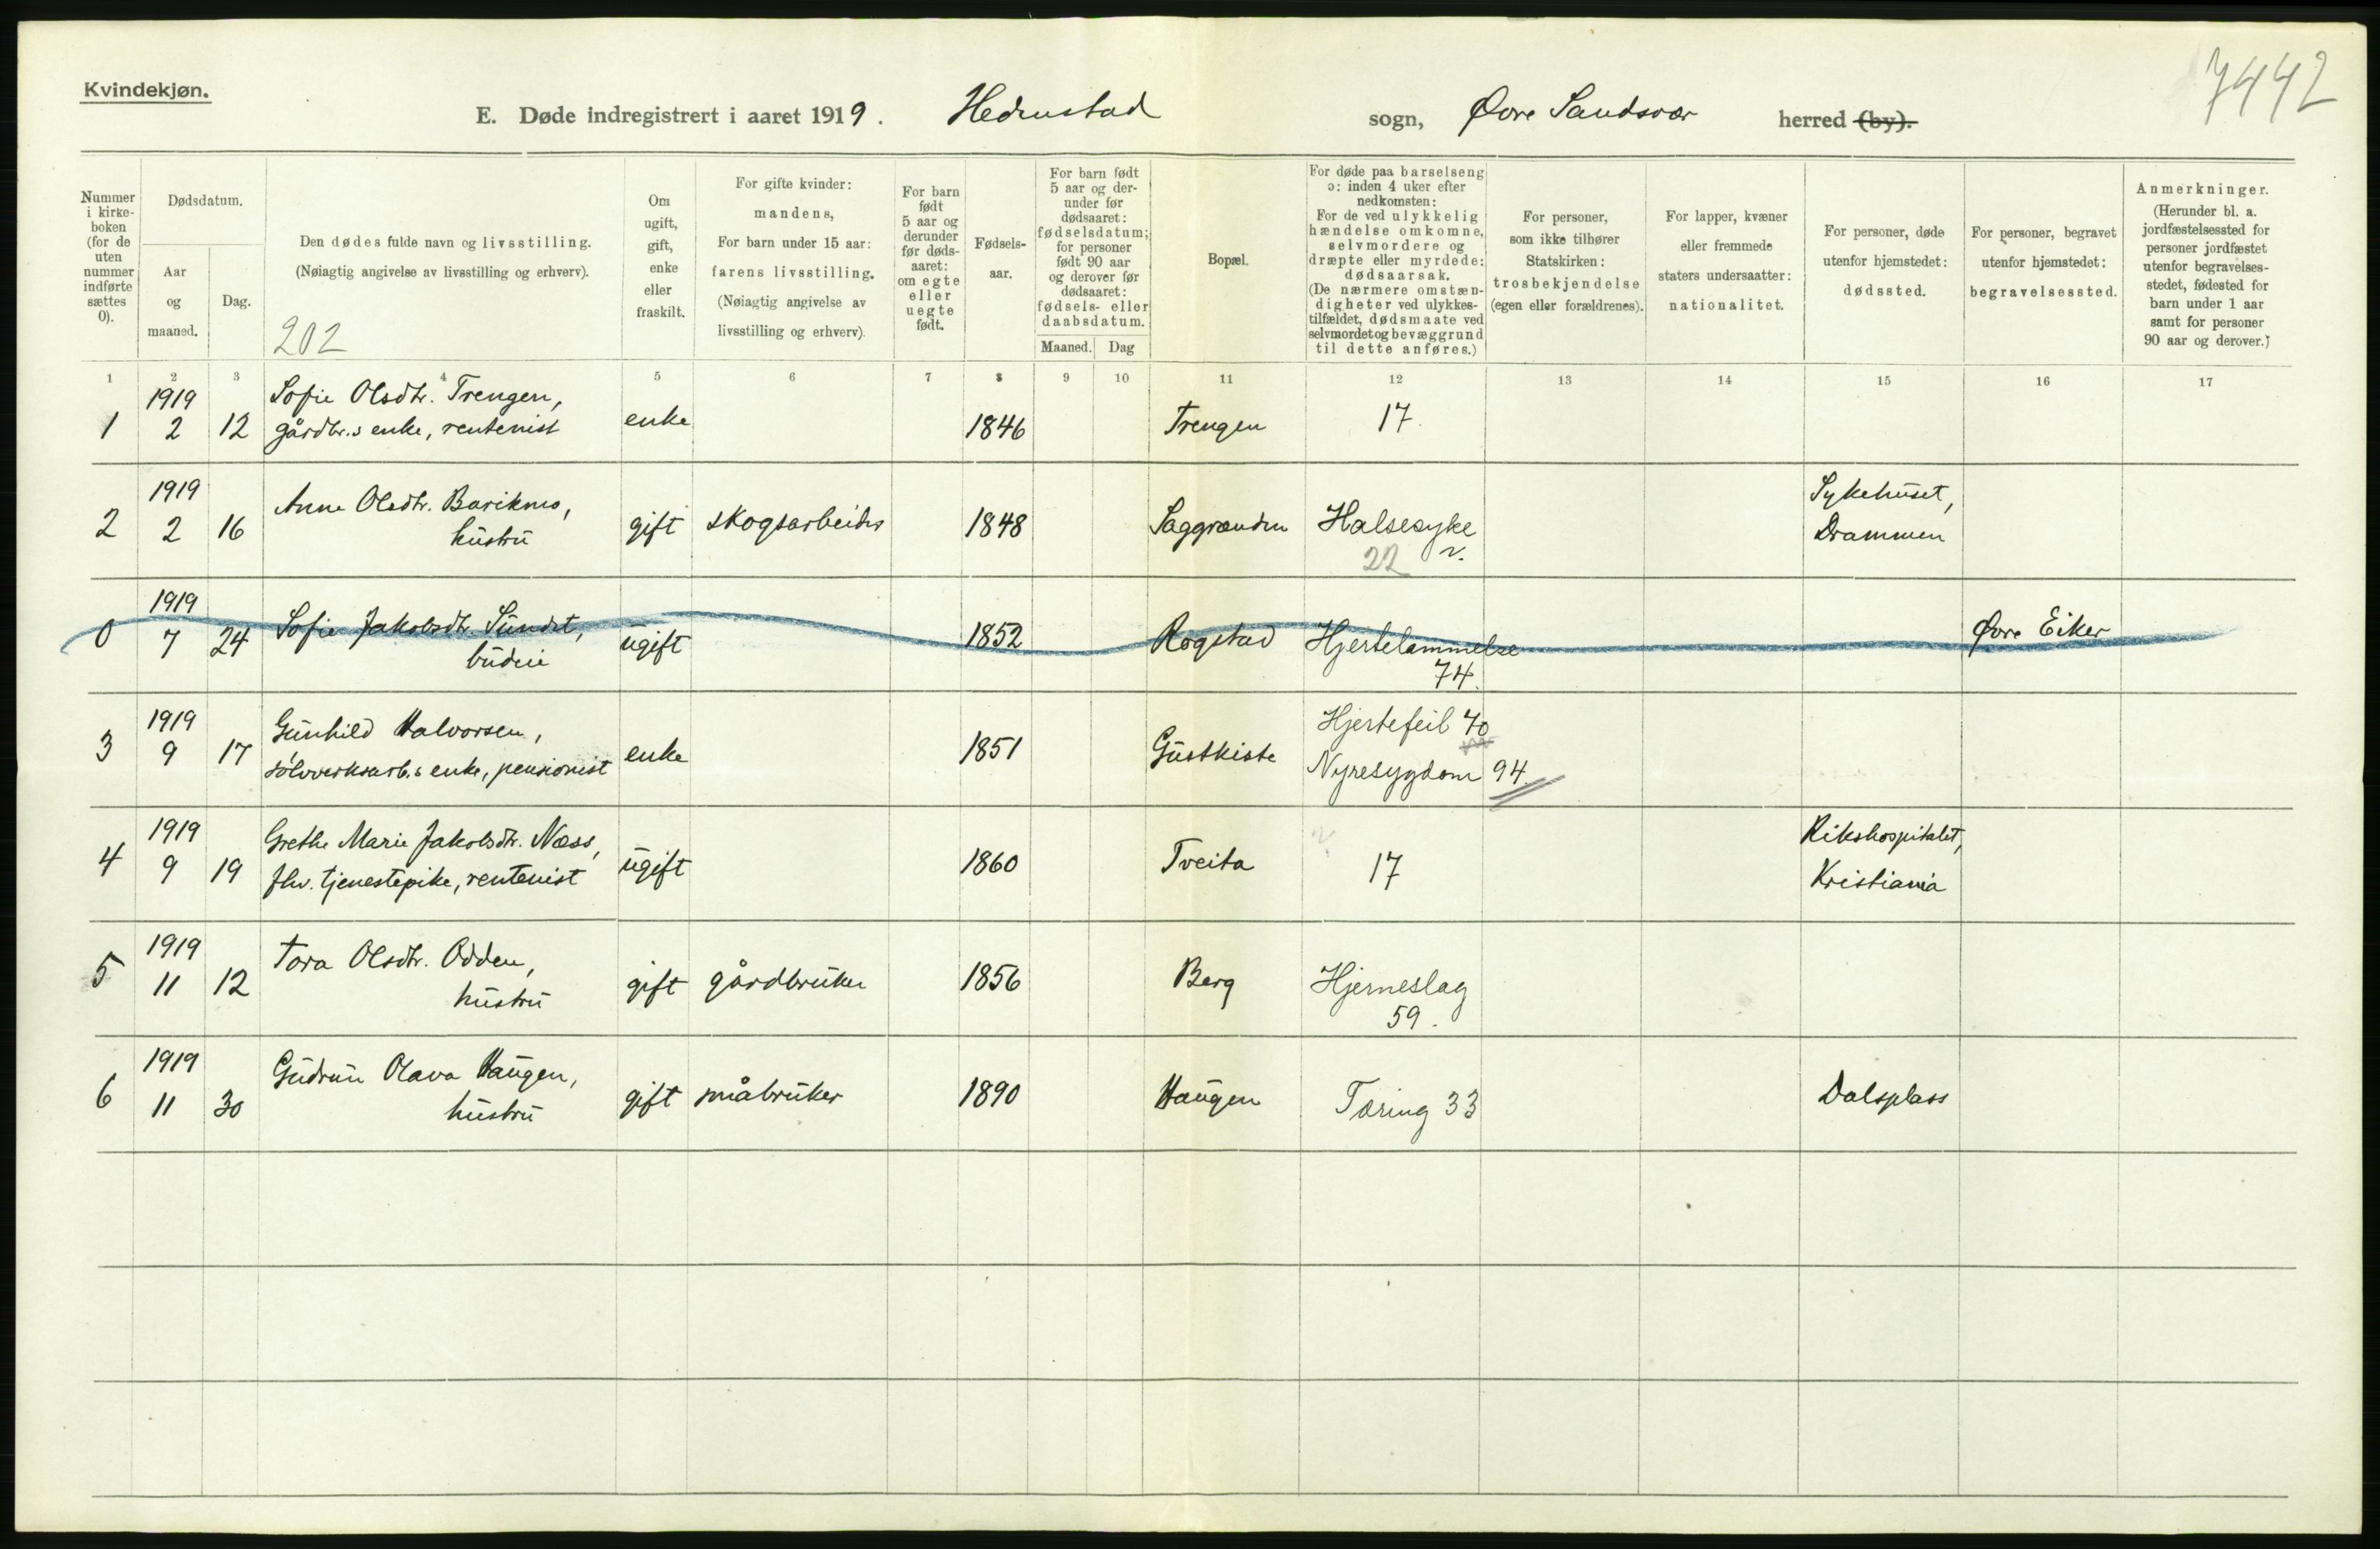 7442
Kvindekjøn.
E. Døde indregistrert i aaret 1919. Hedenstad sogn, Øvre Sandsvær herred (by).
Nummer i kirkeboken (for de uten nummer indførte sættes 0).
Dødsdatum.
Aar og maaned.
Dag.
Den dødes fulde navn og livsstilling.
(Nøiagtig angivelse av livsstilling og erhverv).
202
Om ugift, gift, enke eller fraskilt.
For gifte kvinder: mandens, For barn under 15 aar: farens livsstilling. (Nøiagtig angivelse av livsstilling og erhverv).
For barn født 5 aar og derunder før dødsaaret: om egte eller uegte født.
Fødselsaar.
For barn født 5 aar og derunder før dødsaaret: fødselsdatum; for personer født 90 aar og derover før dødsaaret: fødsels- eller daabsdatum.
Maaned. Dag
Bopæl.
For døde paa barselseng ɔ: inden 4 uker efter nedkomsten: For de ved ulykkelig hændelse omkomne, selvmordere og dræpte eller myrdede: dødsaarsak. (De nærmere omstændigheter ved ulykkestilfældet, dødsmaate ved selvmordet og bevæggrund til dette anføres.)
For personer, som ikke tilhører Statskirken: trosbekjendelse (egen eller forældrenes).
For lapper, kvæner eller fremmede staters undersaatter: nationalitet.
For personer, døde utenfor hjemstedet: dødssted.
For personer, begravet utenfor hjemstedet: begravelsessted.
Anmerkninger. (Herunder bl. a. jordfæstelsessted for personer jordfæstet utenfor begravelsesstedet, fødested for barn under 1 aar samt for personer 90 aar og derover.)
1 2 3 4 5 6 7 8 9 10 11 12 13 14 15 16 17
1 1919 2 12 Sofie Olsdtr. Trengen, gårdbr.s enke, rentenist enke 1846 Trengen 17.
2 1919 2 16 Anne Olsdtr. Barikmo, hustru gift skogsarbeider 1848 Saggrenden Halsesyke 22 v. Sykehuset, Drammen
0 1919 7 24 Sofie Jakobsdtr. Sundet, budeie ugift 1852 Rogstad Hjertelammelse 74. Øvre Eiker
3 1919 9 17 Gunhild Halvorsen, sølvverksarb.s enke, pensionist enke 1851 Gustkiste Hjertefeil 70 Nyresygdom 94.
4 1919 9 19 Grethe Marie Jakobsdtr. Næss, fhv. tjenestepike, rentenist ugift 1860 Tveita 17 Rikshospitalet, Kristiania
5 1919 11 12 Tora Olsdtr. Odden, hustru gift gårdbruker 1856 Berg Hjerneslag 59.
6 1919 11 30 Gudrun Olava Haugen, hustru gift småbruker 1890 Haugen Tæring 33 Dalsplass